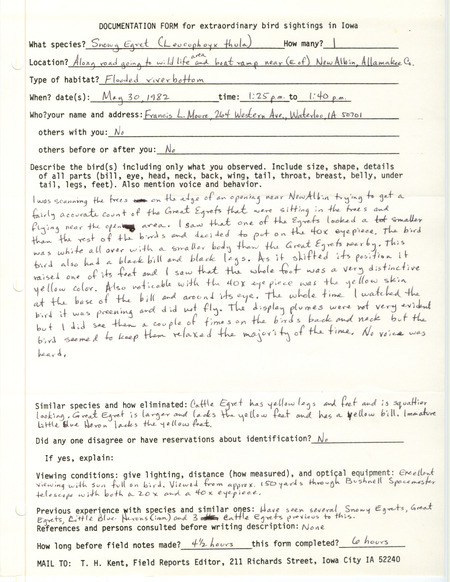 DOCUMENTATION FORM for extraordinary bird sightings in Iowa
What species? Snowy Egret (Leucophoyx thula) How many? 1
Location? Along road going to wildlife area and boat ramp near (E of) New Albin, Allamakee Co.
Type of habitat? Flooded riverbottom
When? date(s): May 30, 1982 time: 1:25 p.m. to 1:40 p.m.
Who?your name and address: Francis L. Moore, 264 Western Ave., Waterloo, IA 50701
others with you: No
others before or after you: No
Describe the bird(s) including only what you observed. Include size, shape, details
of all parts (bill, eye, head, neck, back, wing, tail, throat, breast, belly, under
tail, legs, feet). Also mention voice and behavior.
I was scanning the trees on the edge of an opening near New Albin trying to get a
fairly accurate count of the Great Egrets that were sitting in the trees and
flying near the open area. I saw that one of the Egrets looked a lot smaller
than the rest of the birds and decided to put on the 40x eyepiece. The bird
was white all over with a smaller body than the Great Egrets nearby. This
bird also had a black bill and black legs. As it shifted its position it
raised one of its feet and I saw that the whole foot was a very distinctive
yellow color. Also noticeable with the 40x eyepiece was the yellow skin
at the base of the bill and around its eye. The whole time I watched the
bird it was preening and did not fly. The display plumes were not very evident
but I did see them a couple of times on the birds back and neck but the
bird seemed to keep them relaxed the majority of the time. No voice was
heard.
Similar species and how eliminated: Cattle Egret has yellow legs and feet and is squattier
looking. Great Egret is larger and lacks the yellow feet and has a yellow bill. Immature
Little Blue Heron lacks the yellow feet.
Did any one disagree or have reservations about identification? No
If yes, explain:
Viewing conditions: give lighting, distance (how measured), and optical equipment: Excellent
viewing with sun full on bird. Viewed from approx. 150 yards through Bushnell Spacemaster
telescope with both a 20x and a 40x eyepiece.
Previous experience with species and similar ones: Have seen several Snowy Egrets, Great
Egrets, Little Blue Herons (imm) and 3 Cattle Egrets previous to this.
References and persons consulted before writing description: None
How long before field notes made? 4½ hours this form completed? 6 hours
MAIL TO: T. H. Kent, Field Reports Editor, 211 Richards Street, Iowa City IA 52240